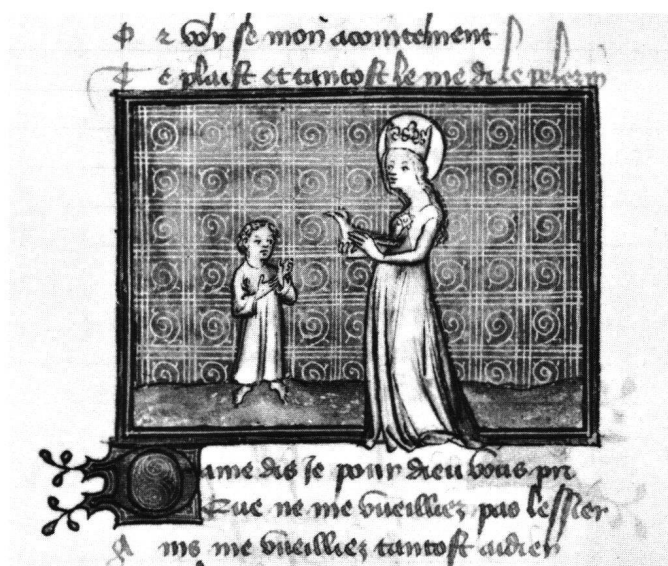 O r voy se mon acointement
T e plaist et tantost le me di le pelerin
Dame dis je pour dieu vous pri
Que ne me vueilliez pas lessier
A ins me vueilliez tantost aidier